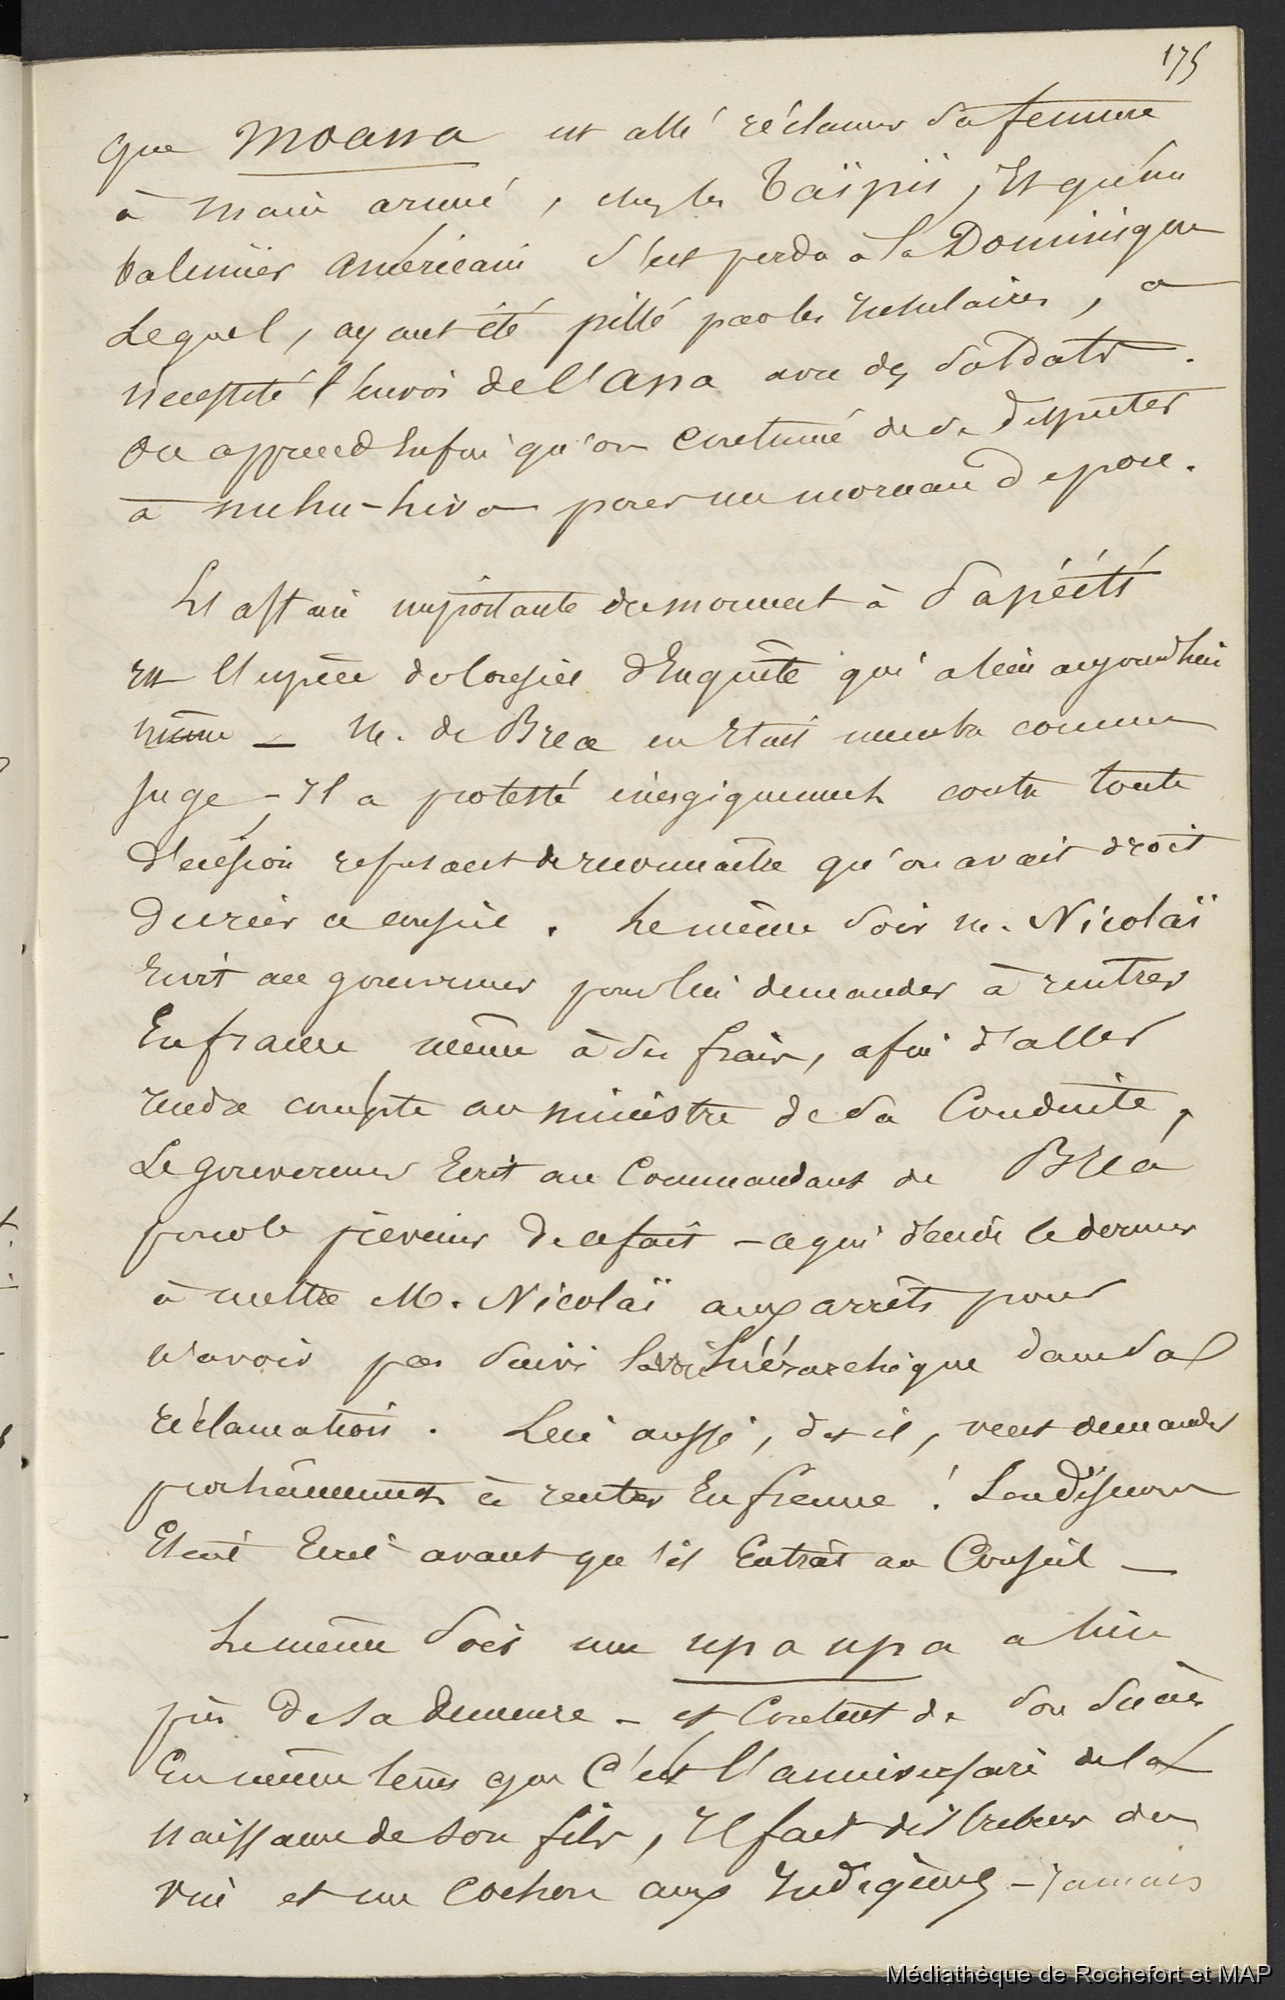 175
que Moana est allé réclamer sa femme
à main armé, chez les Taïpii, Et qu'un
balennier américain s'est perdu à la Dominique
Lequel, ayant été pillé par les insulaires, a
nécessité l'envoi de l'ana avec des soldats.
On apprend Enfin qu'on continue de se disputer
à nuhu-hiva pour un morceau de porc.
L'affaire importante du moment à Papéité
est l'espèce de conseil d'Enquête qui a lieu aujourd'hui
même — M. de Bréa en était membre comme
juge — Il a protesté énergiquement contre toute
décision refusant de reconnaître qu'on avait droit
du réunir ce conseil. Le même soir M. Nicolaï
Ecrit au gouverneur pour lui demander à rentrer
En france même à ses frais, afin d'aller
rendre compte au ministre de sa Conduite,
Le gouverneur Ecrit au Commandant de Bréa
pour le prévenir de ce fait — ce qui décide le dernier
à mettre M. Nicolaï aux arrêts pour
n'avoir pas suivi la voie hiérarchique dans sa
réclamation. Lui aussi, dit il, veut demander
prochainement à rentrer En france! Son discours
Etait Ecrit avant qu'il Entrât au Conseil —
Le même soir une upa upa a lieu
près de sa demeure — et Content de son succès
En même tems que C'est l'anniversaire de la
naissance de son fils, Il fait distribuer du
vin et un Cochon aux Indigènes — Jamais
Médiathèque de Rochefort et MAP